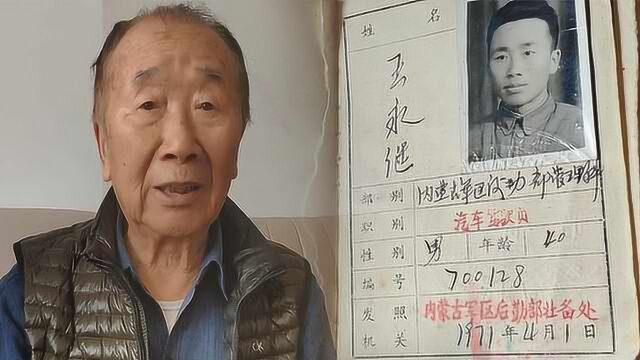 姓名
王永继
部别 内蒙古军区后勤部管理科
职别 汽车驾驶员
性别 男 年龄 40
编号 700128
发照机关 内蒙古军区后勤部壮备处
1971年4月1日
CK